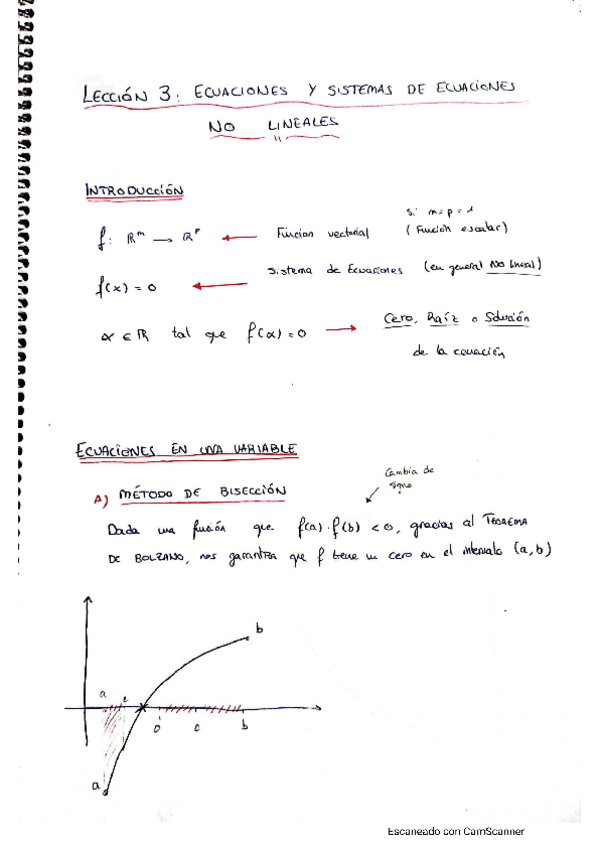 LECCIÓN 3: ECUACIONES Y SISTEMAS DE ECUACIONES
NO LINEALES
INTRODUCCIÓN
si m=p=1
f: ℝᵐ → ℝᵖ ← Funcion vectorial (Función escalar)
f(x) = 0 ← Sistema de Ecuaciones (en general NO lineal)
α ∈ ℝ tal que f(α) = 0 → Cero, Raíz o Solución
de la ecuación
ECUACIONES EN UNA VARIABLE
Cambia de
signo
A) MÉTODO DE BISECCIÓN
Dada una función que f(a)·f(b) < 0, gracias al TEOREMA
DE BOLZANO, nos garantiza que f tiene un cero en el intervalo (a,b)
b
a c
0 c b
a
Escaneado con CamScanner